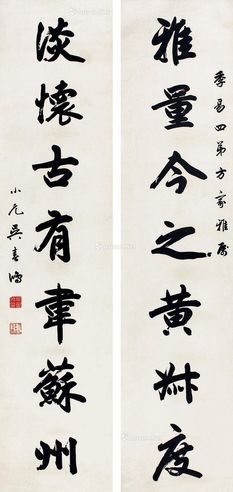 季易四弟方家雅屬
雅量今之黄叔度
淡懷古有韋蘇州
小尢吳春